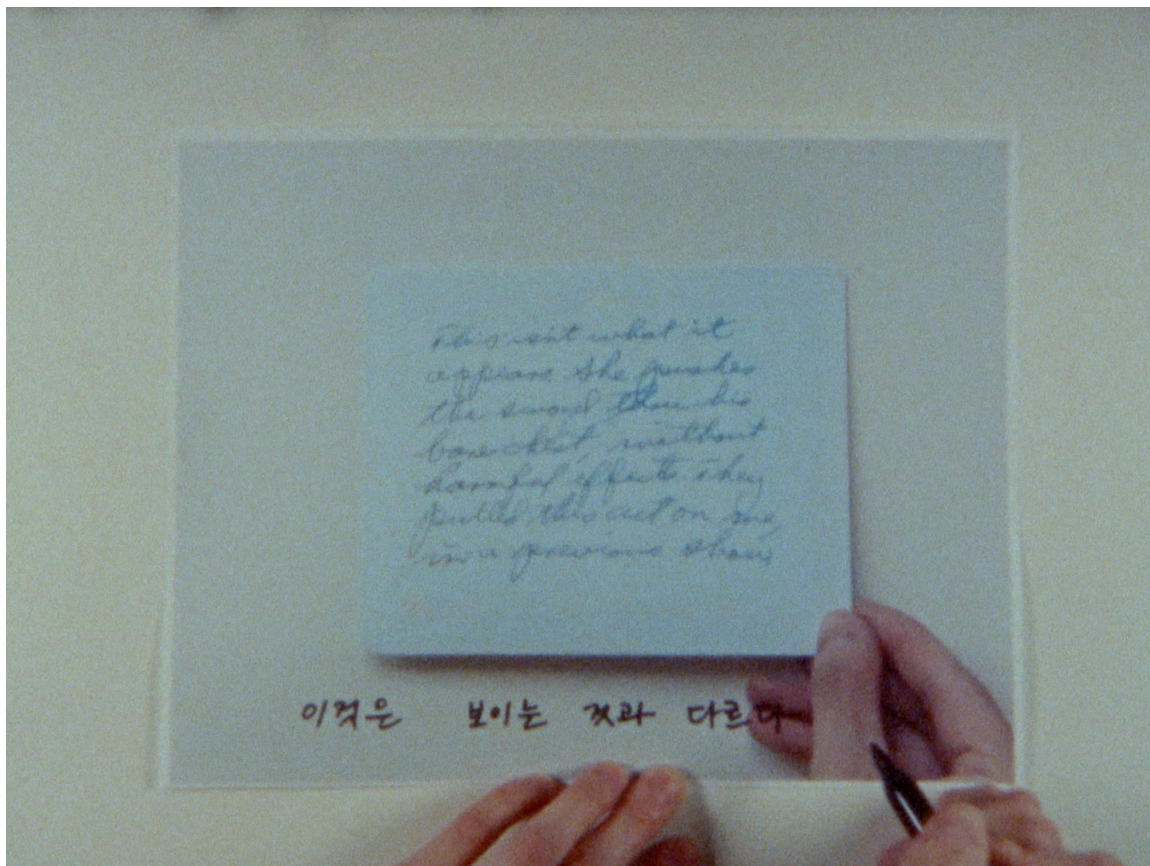 This isn't what it
appears. She pushes
the sword thru his
bare chest, without
harmful effects. They
pulled this act on me,
in a previous show.
이것은 보이는 것과 다르다